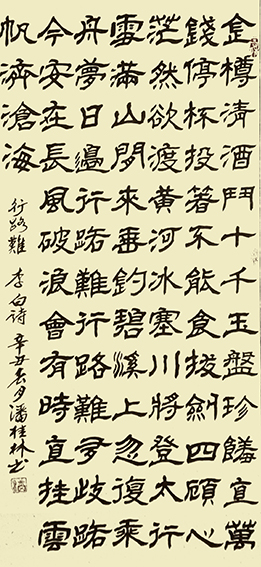 金樽清酒鬥十千玉盤珍饈直萬
錢停杯投箸不能食拔劍四顧心
茫然欲渡黃河冰塞川將登太行
雪滿山閒來垂釣碧溪上忽復乘
舟夢日邊行路難行路難多歧路
今安在長風破浪會有時直挂雲
帆濟滄海
行路難 李白詩 辛丑冬月潘桂林书